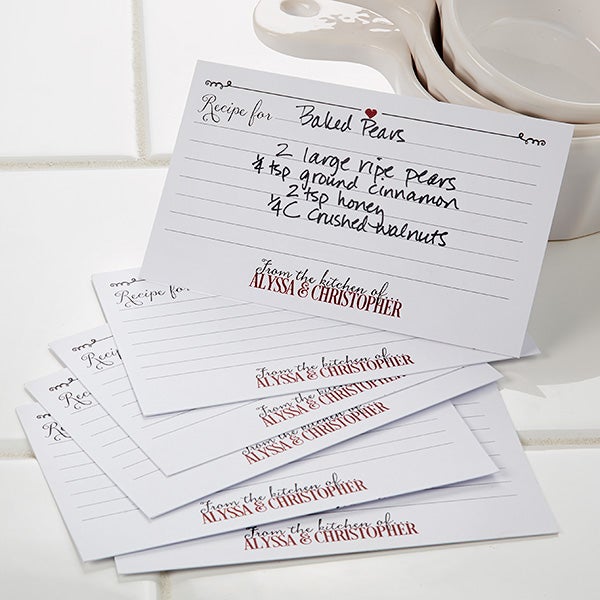 Recipe for Baked Pears
2 large ripe pears
¼ tsp ground cinnamon
2 tsp honey
¼ C crushed walnuts
From the kitchen of...
ALYSSA & CHRISTOPHER
Recipe for
From the kitchen of...
ALYSSA & CHRISTOPHER
Rec
From the kitchen of...
ALYSSA & CHRISTOPHER
Rec
From the kitchen of...
ALYSSA & CHRISTOPHER
Rec
From the kitchen of...
ALYSSA & CHRISTOPHER